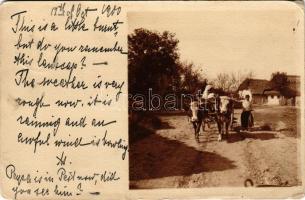 18th of Oct 1900
This is a little burnt,
but do you remember
this landscap? —
The weather is very
rough now. it is
raining and an
awful wind is howling
is in Pest now, did
you see him? —
DARABANTH